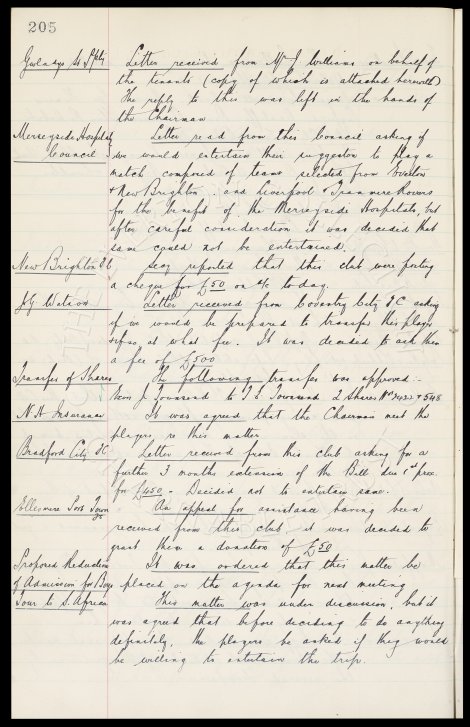 205
Gwladys St Ppty Letter received from Mr J Williams on behalf of
the tenants (copy of which is attached herewith)
The reply to this was left in the hands of
the Chairman
Merseyside Hospitals Letter read from this Council asking if
Council we would entertain their suggestion to play a
match composed of teams selected from Everton
& New Brighton and Liverpool & Tranmere Rovers
for the benefit of the Merseyside Hospitals, but
after careful consideration it was decided that
same could not be entertained.
New Brighton F C Secy reported that this club were posting
a cheque for £50 on a/c today.
J G Watson Letter received from Coventry City F C asking
if we would be prepared to transfer this player
& if so, at what fee. It was decided to ask them
a fee of £500
Transfer of Shares The following transfer was approved:-
J. Townsend to T. E. Townsend 2 Shares
N. H. Insurance It was agreed that the Chairman meet the
players re this matter
Bradford City F.C. Letter received from this club asking for a
further 3 months extension of the Bill due 1st prox.
for £450 - Decided not to entertain same.
Ellesmere Port Town An appeal for assistance having been
received from this club it was decided to
grant them a donation of £50
Proposed Reduction It was ordered that this matter be
of Admission for Boys placed on the agenda for next meeting
Tour to S. Africa This matter was under discussion, but it
was agreed that before deciding to do anything
definitely, the players be asked if they would
be willing to entertain the trip.